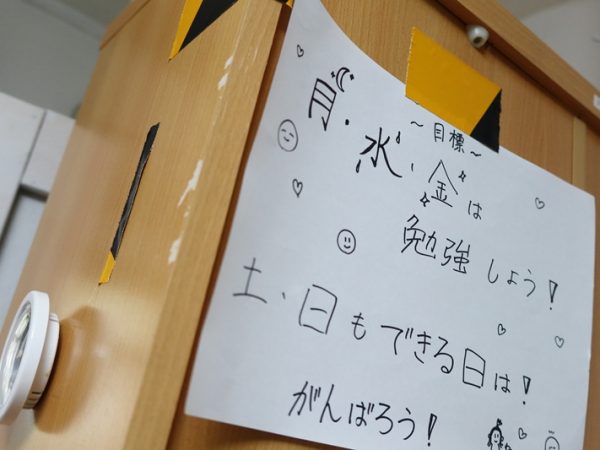 ～目標～
月、水、金は
勉強しよう！
土、日もできる日は！
がんばろう！